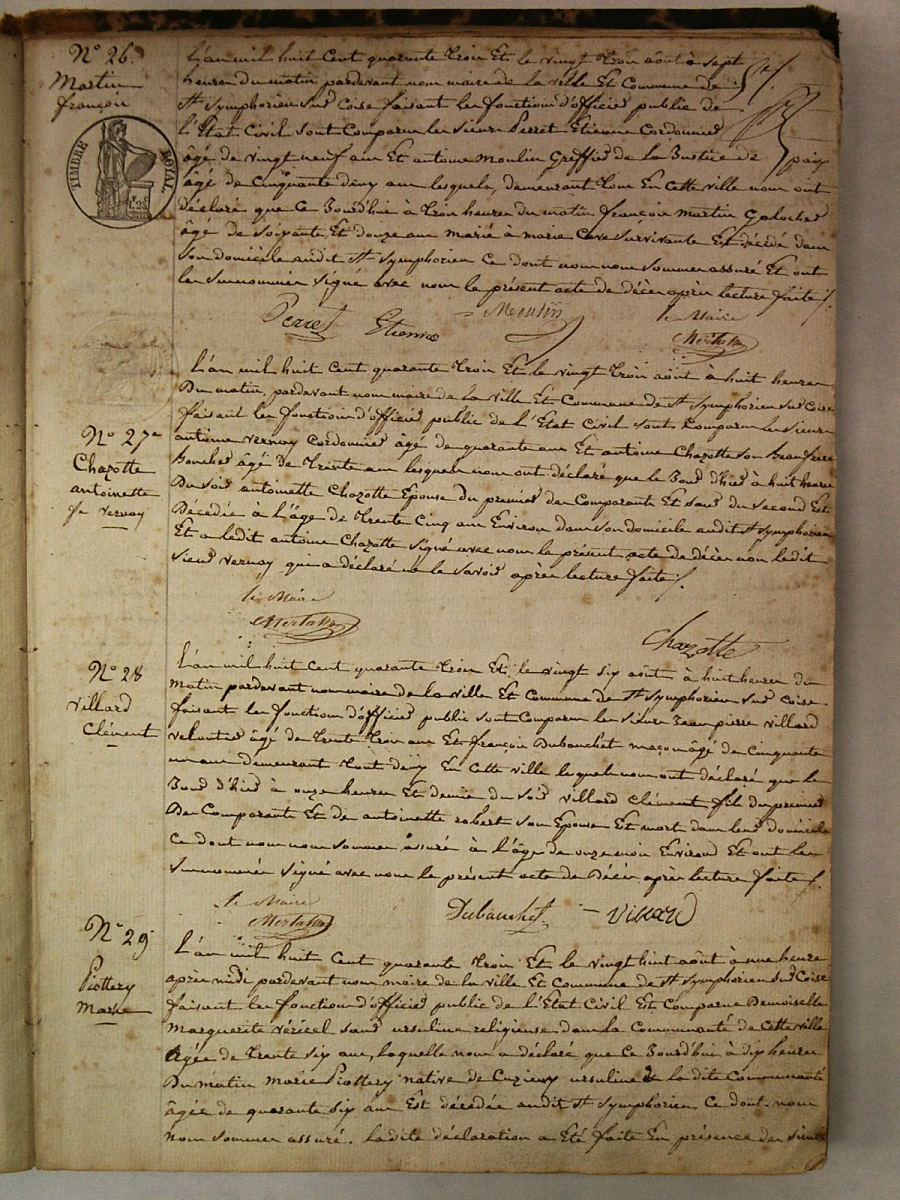 N° 26.
Martin
françois
TIMBRE ROYAL
L'an mil huit Cent quarante trois Et le vingt trois août à sept
heures du matin pardevant nous maire de la ville Et Commune de
St Symphorien sur Coise faisant les fonctions d'officier public de
l'Etat Civil sont Comparus les sieurs Perret Etienne Cordonnier
âgé de vingt neuf ans Et antoine Moulin Greffier de la Justice de paix
âgé de Cinquante deux ans lesquels, demeurant tous En cette ville nous ont
déclaré que Ce Jourd'hui à trois heures du matin françois Martin Galocher
âgé de soixante Et douze ans marié à marie Cave survivante Est décédé dans
son domicile audit St Symphorien Ce dont nous nous sommes assuré Et ont
les surnommés signé avec nous le présent acte de décès après lecture faite /.
Perret Etienne
Moulin
le Maire
N° 27e
Chazotte
antoinette
fe Vernay
L'an mil huit Cent quarante trois Et le vingt trois août à huit heures
Du matin, pardevant nous maire de la ville Et Commune de St Symphorien sur Coise
faisant les fonctions d'officier public de l'Etat Civil sont Comparus les sieurs
antoine Vernay Cordonnier âgé de quarante ans Et antoine Chazotte son Beau frère
Boucher âgé de trente ans lesquels nous ont déclaré que le Jour d'hier à huit heures
Du soir antoinette Chazotte Epouse du premier des Comparants Et sœur du second Est
Décédée à l'âge de trente Cinq ans Environ dans son domicile audit St Symphorien
Et a ledit antoine Chazotte signé avec nous le présent acte de décès non ledit
sieur Vernay qui a déclaré ne le savoir après lecture faite /.
le Maire
Chazotte
N° 28
Villard
Clément
L'an mil huit Cent quarante trois Et le vingt six août à huit heures du
matin pardevant nous maire de la ville Et Commune de St Symphorien sur Coise
faisant les fonctions d'officier public sont Comparus les sieurs Jean pierre Villard
veloutier âgé de trente trois ans Et françois Dubanchet maçon âgé de Cinquante
un ans demeurant tout deux En cette ville lesquels nous ont déclaré que le
Jour d'hier à onze heures Et demie du soir Villard Clément fils du premier
Des Comparants Et de antoinette robert son Epouse Est mort dans leur domicile
Ce dont nous nous sommes assuré à l'âge de onze mois Environ Et ont les
surnommés signé avec nous le présent acte de Décès après lecture faite /.
le Maire
Dubanchet
Villard
N° 29
Piottery
Marie
L'an mil huit Cent quarante trois Et le vingt huit août à une heure
après midi pardevant nous maire de la ville Et Commune de St Symphorien sur Coise
faisant les fonctions d'officier public de l'Etat Civil Est Comparue Demoiselle
Marguerite Véricel sœur ursuline religieuse dans la Communauté de Cette ville
âgée de trente six ans, laquelle nous a déclaré que Ce Jourd'hui à dix heures
Du matin Marie Piottery native de Cuzieux ursuline de la dite Communauté
âgée de quarante six ans Est décédée audit St Symphorien, Ce dont nous
nous sommes assuré. Ladite déclaration a Eté faite En présence des sieurs